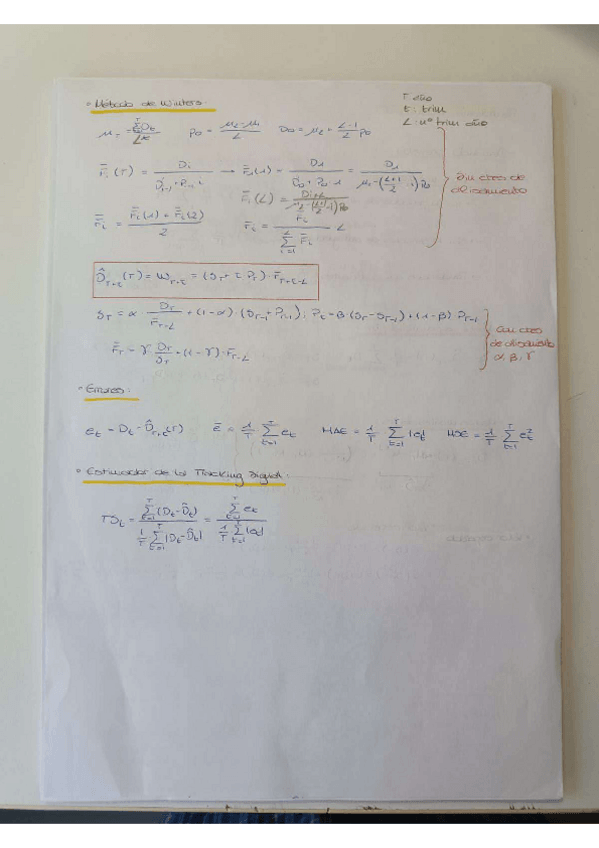 • Método de Winters:
T: año
t: trim
L: nº trim año
μ_T = Σ^T D_t / L   P_0 = (μ_2 - μ_1) / L   D_0 = μ_2 + (L-1)/2 P_0
F̄_i(T) = D_i / → F̄_i(1) = D_1 / (D_0 + P_0·1) = D_1 /
F̄_i(L) =
F̄_i = (F̄_i(1) + F̄_i(2)) / 2   F̄_i = F̄_i / (Σ_{i=1}^L F̄_i) · L
Sin ctes de
alisamiento
D̂_{T+τ}(T) = W_{T+τ} = (S_T + τ P_T) · F̄_{T+τ-L}
S_T = α · D_T / F̄_{T-L} + (1-α) · (S_{T-1} + P_{T-1}); P_t = β (S_T - S_{T-1}) + (1-β) P_{T-1}
F̄_T = γ D_T / S_T + (1-γ) · F̄_{T-L}
Con ctes
de alisamiento
α, β, γ
• Errores:
e_t = D_t - D̂_{T,τ}(T)   ē = 1/T Σ_{t=1}^T e_t   MAE = 1/T Σ_{t=1}^T |e_t|   MSE = 1/T Σ_{t=1}^T e_t²
• Estimador de la Tracking Signal:
TS_t = Σ_{t=1}^T (D_t - D̂_t) / (1/T Σ_{t=1}^T |D_t - D̂_t|) = Σ_{t=1}^T e_t / (1/T Σ_{t=1}^T |e_t|)